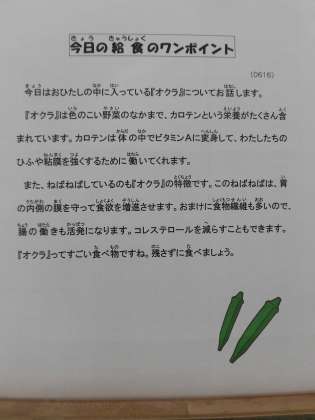 今日の給食のワンポイント
(0616)
今日はおひたしの中に入っている『オクラ』についてお話します。
『オクラ』は色のこい野菜のなかまで、カロテンという栄養がたくさん含
まれています。カロテンは体の中でビタミンAに変身して、わたしたちの
ひふや粘膜を強くするために働いてくれます。
また、ねばねばしているのも『オクラ』の特徴です。このねばねばは、胃
の内側の膜を守って食欲を増進させます。おまけに食物繊維も多いので、
腸の働きも活発になります。コレステロールを減らすこともできます。
『オクラ』ってすごい食べ物ですね。残さずに食べましょう。